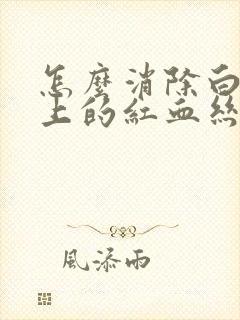 怎麼消除白
上的紅血絲
風添雨